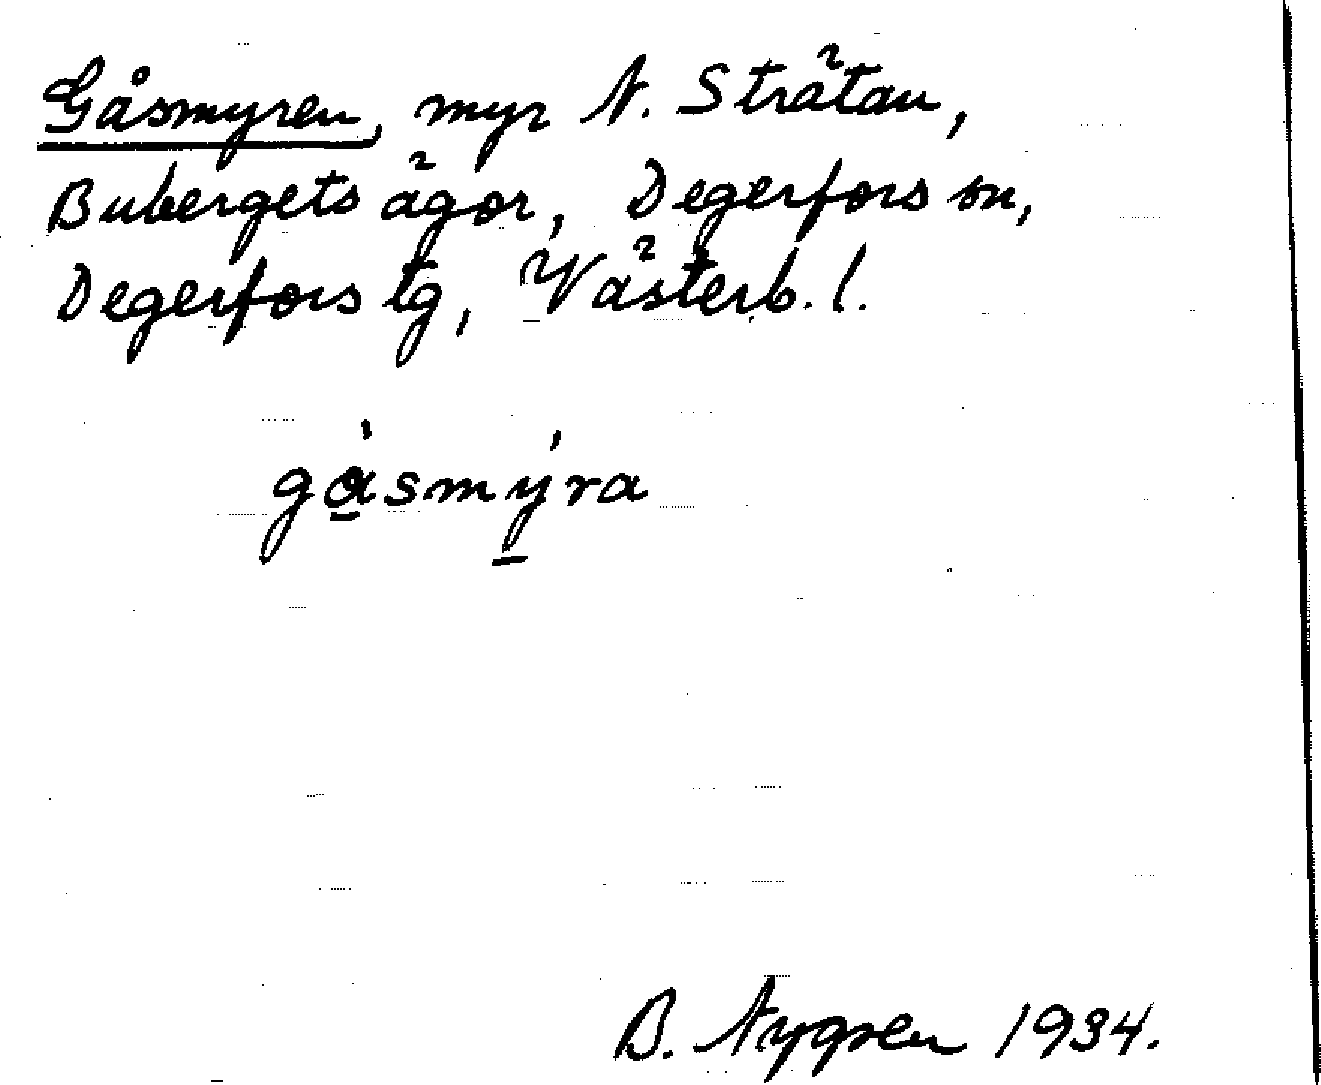 Gåsmyren, myr N. Strätan,
Bubergets ägor, Degerfors sn,
Degerfors tg, Västerb. l.
gåsmýra
B. Nygren 1934.